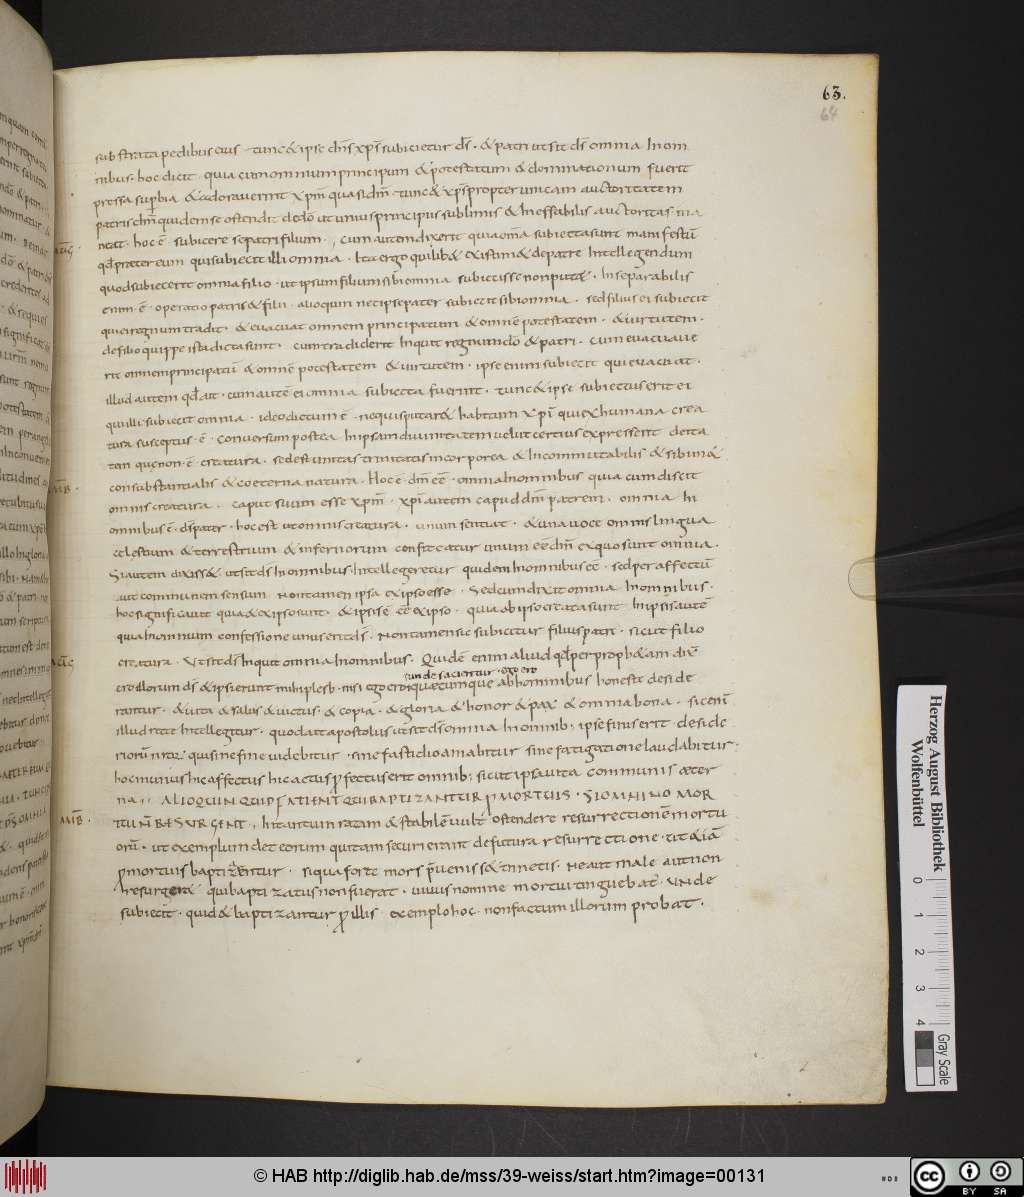 63.
64
substrata pedibus eius · tunc & ipse dn̄s xp̄s subicietur dō · & patri ut sit ds̄ omnia In om
nibus · hoc dicit · quia cum omnium principum & potestatum & dominationum fuerit
pressa sup̱bia & adoraverint xp̄m quasi dm̄ · tunc & xp̄s propter unicam auctoritatem
patris cum quidem se ostendit de dō ut unius principii sublimis & Ineffabilis auctoritas ma
neat · hoc ē subicere se patri filium · cum autem dixerit quia om̄a subiecta sunt manifestū
qd̄ preter eum qui subiecit illi omnia · Ita ergo quilib& existim& de patre Intellegendum
quod subiecerit omnia filio · ut ipsum filium sibi omnia subiecisse non put& · Inseparabilis
enim · ē · operatio patris & filii · alioquin nec ipse pater subiecit sibi omnia · sed filius ei subiecit
qui ei regnum tradit · & evacuat omnem principatum & omnē potestatem · & uirtutem ·
de filio quippe ista dicta sunt · cum tradiderit Inquit regnum dō & patri · cum evacuave
rit omnem principatū & omnē potestatem & uirtutem · ipse enim subiecit qui evacuat ·
illud autem qd̄ ait · cum autē ei omnia subiecta fuerint · tunc & ipse subiectus erit ei
qui illi subiecit omnia · ideo dictum ē · ne quis putar& habitum xp̄i qui ex humana crea
tura susceptus · ē · conversum postea In ipsam divinitatem velut certius expresserit deita
tem quę non · ē · creatura · sed est unitas trinitatis incorporea & Incommutabilis & sibim&
consubstantialis & coeterna natura · Hoc · ē · dm̄ eē · omnia In omnibus quia cum discit
omnis creatura · caput suum esse xp̄m · xp̄i autem caput dm̄ patrem · omnia In
omnibus · ē · ds̄ pater · hoc est ut omnis creatura · unum sentiat · & una voce omnis lingua
celestium & terrestrium & infernorum confiteatur unum eē dm̄ ex quo sunt omnia ·
Si autem dixiss& ut sit ds̄ In omnibus · Intellegeretur quidem In omnibus eē · sed per affectū
aut communem sensum non tamen ipsa ex ipso esse · Sed cum dixit omnia In omnibus ·
hoc significavit quia & ex ipso sunt · & ipsis ē eē ex ipso · quia ab ipso creata sunt In ipsis autē
quia In omnium confessione unus erit ds̄ · Non tamen sic subicitur filius patri · sicut filio
creatura · Ut sit ds̄ Inquit omnia In omnibus · Quid ē enim aliud qd̄ per proph&am dix̄
unde sacientur · ego ero
ero illorum ds̄ & ipsi erunt mihi plebs · nisi ego ero quęcumque ab hominibus honeste deside
rantur · & uita & salus & uictus · & copia · & gloria & honor & pax & omnia bona · sic enī
illud recte Intellegitur · quod ait apostolus ut sit ds̄ omnia In omnib; ipse finis erit deside
riorū nr̄or̄ qui sine fine videbitur · sine fastidio amabitur sine fatigatione laudabitur;
hoc munus hic affectus hic actus ꝓfecto erit omnib; sicut ipsa uita communis aeter
na ·, ALIOQUIN QUID FATIENT QUI BAPTIZANTUR P MORTUIS · SI OMNINO MOR
TUI N̄ RESURGENT · In tantum ratam & stabilē vult ostendere resurrectionē mortu
orū · ut exemplum det eorum qui tam securi erant de futura resurrectione · ut & iā
p mortuis baptizentur · si quā forte mors p̄venisset & timetis · ne aut male aut non
resurger& qui baptizatus non fuerat · vivus nomine mortui tinguebat̄ · Unde
subiecit · quid & baptizantur ꝑ illis · exemplo hoc non factum illorum probat ·
AUG
AMB ·
AUG
AMB ·
Herzog August Bibliothek
Wolfenbüttel
0 1 2 3 4
Gray Scale
© HAB http://diglib.hab.de/mss/39-weiss/start.htm?image=00131
cc BY SA